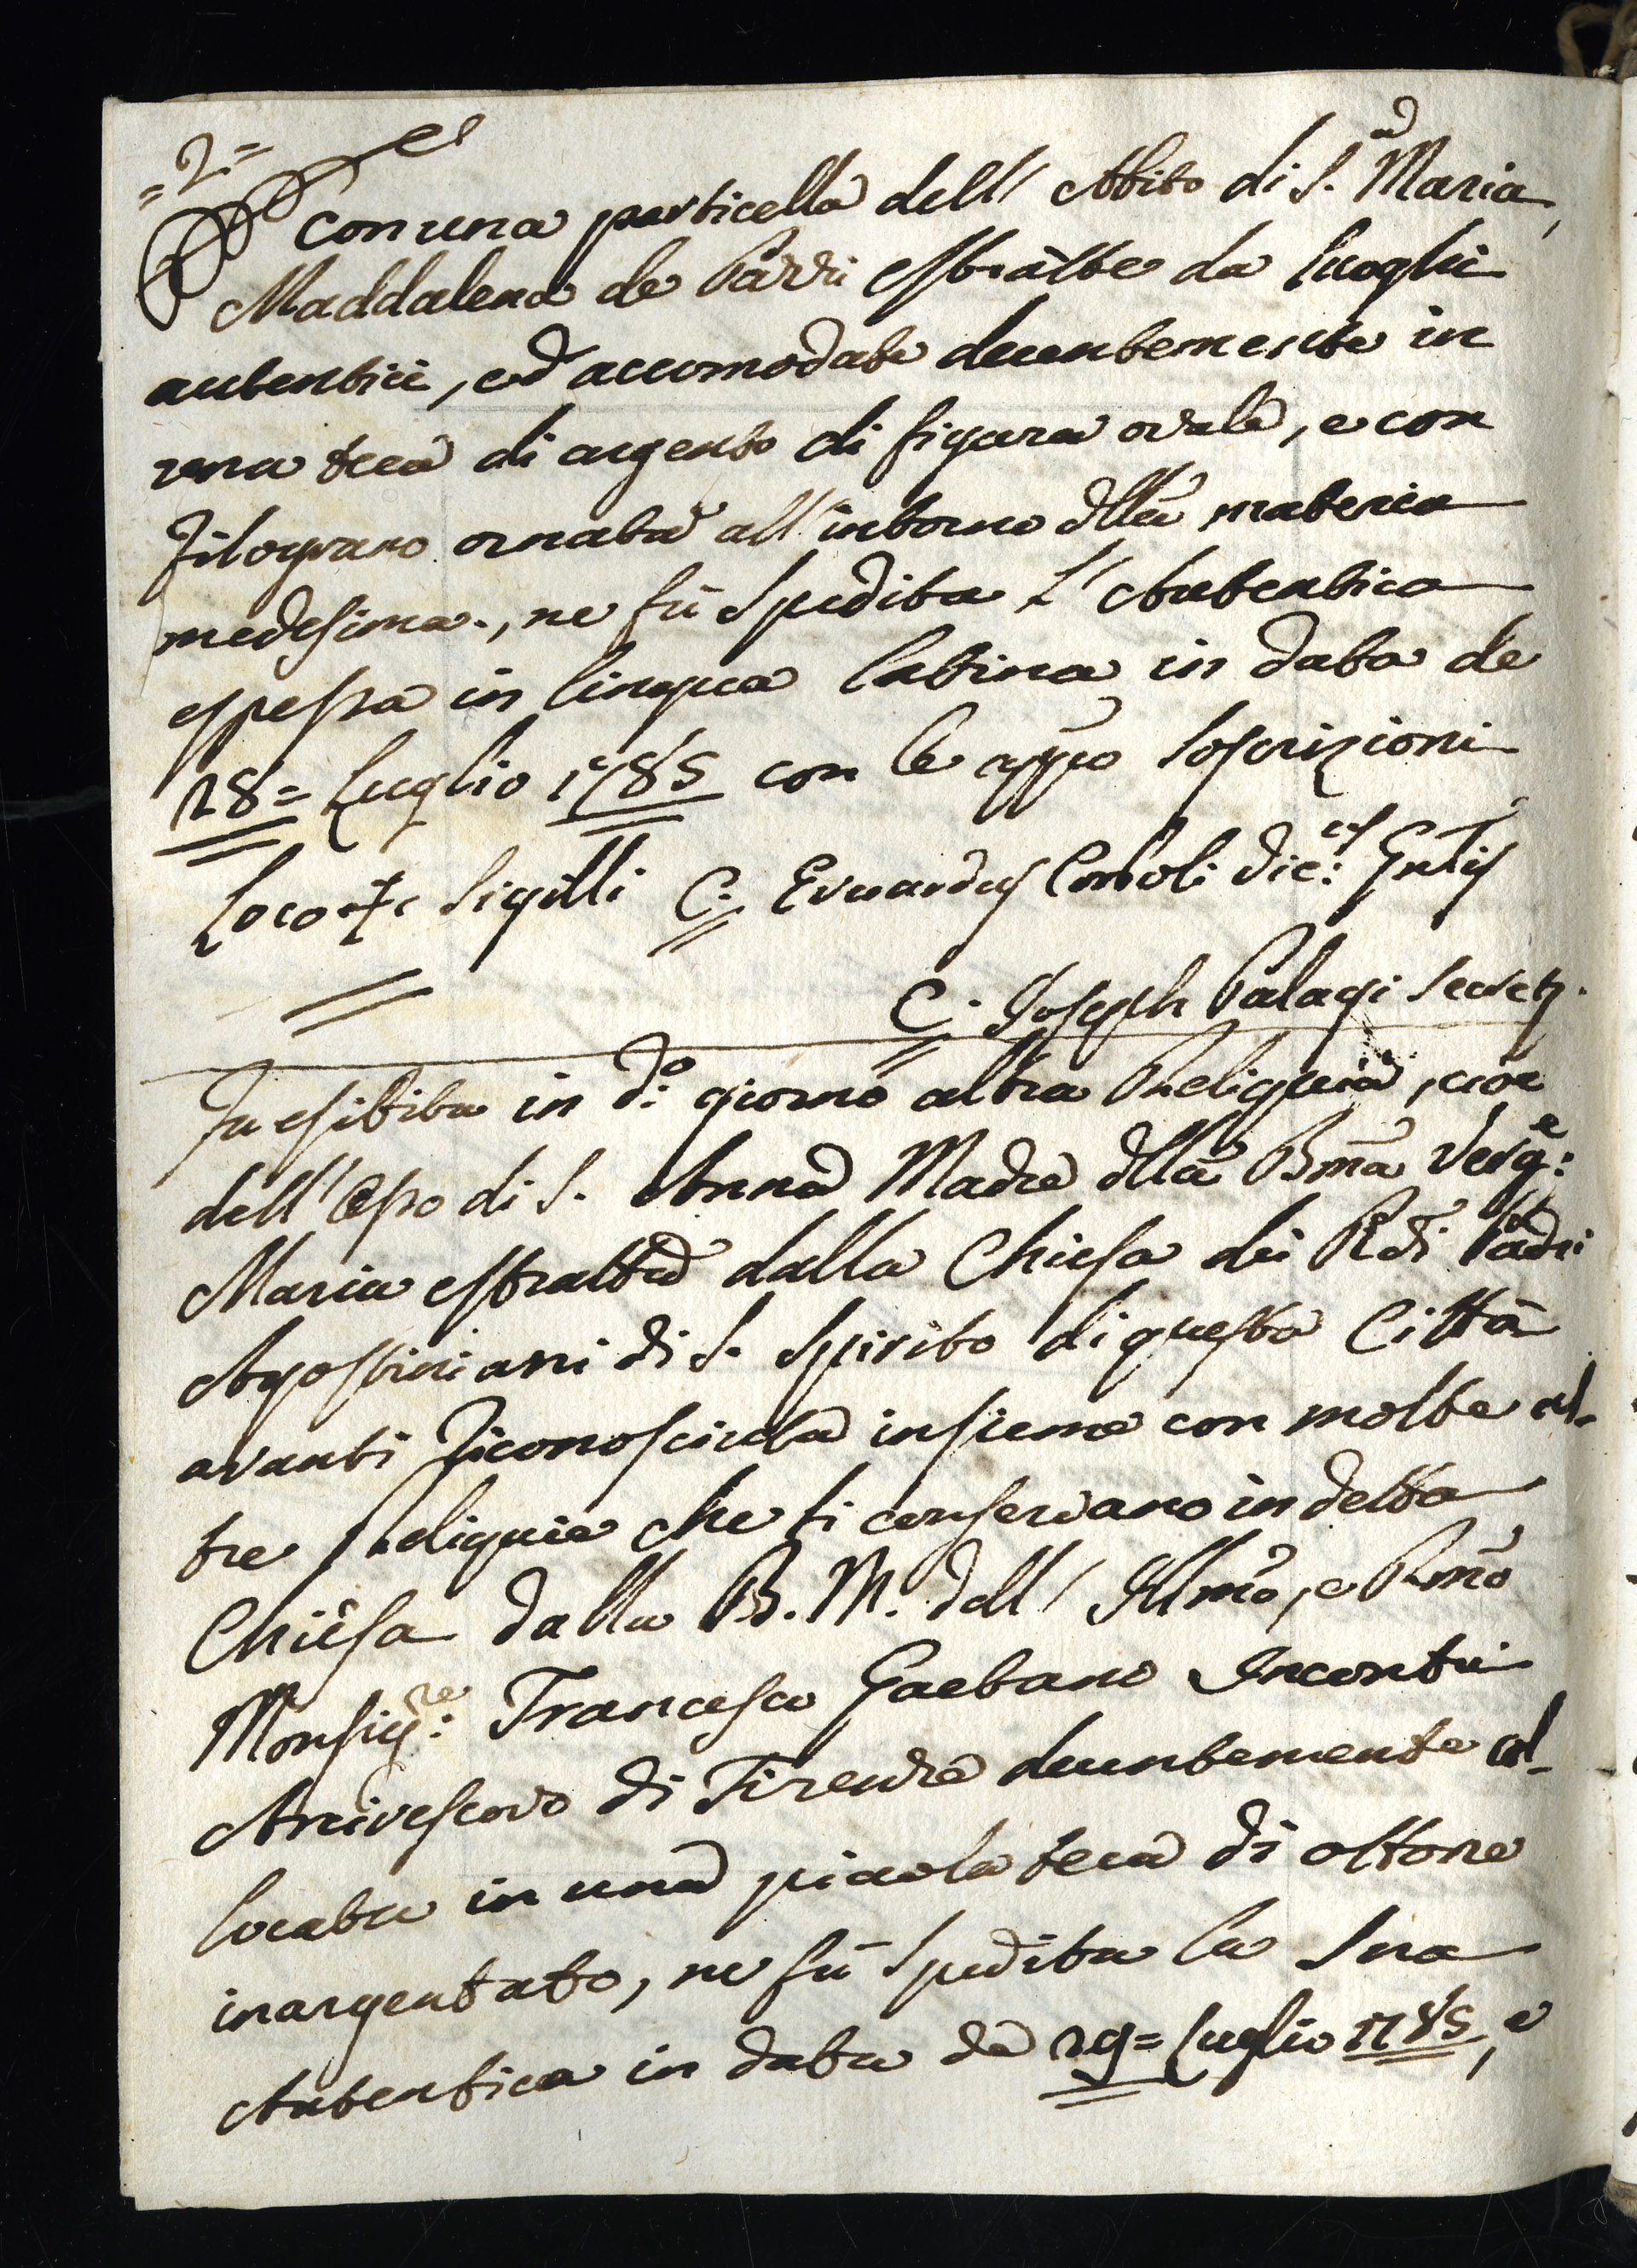 =2=
Con una particella dell' Abito di S. Maria
Maddalena de Pazzi estratte da luoghi
autentici, ed accomodate decentemente in
una teca di argento di figura ovale, e con
filograno ornata all'intorno dlla materia
medesima., ne fù spedita l'Autentica
espressa in lingua latina in data de
28= Luglio 1785 con le appo soscrizioni
Loco + Sigilli C: Evuardus Comoli Vic: Gnlis
C. Joseph Palagi Secret.
Fu esibita in do. giorno altra Reliquia, cioe
dell'Osso di S. Anna Madre dlla Bma Verg.e:
Maria estratta dalla Chiesa dei RRdi. Padri
Agostiniani di S. Spirito di questa Città
avanti riconosciuta insieme con molte al-
tre Reliquie che si conservano in detta
Chiesa dalla B. M. dell' Illmo, e Rmo
Monsig.re: Francesco Gaetano Incontri
Arcivescovo di Firenze decentemente col-
locata in una piccola teca di ottone
inargentato, ne fù spedita la Sua
Autentica in data de 29= Luglio 1785, e